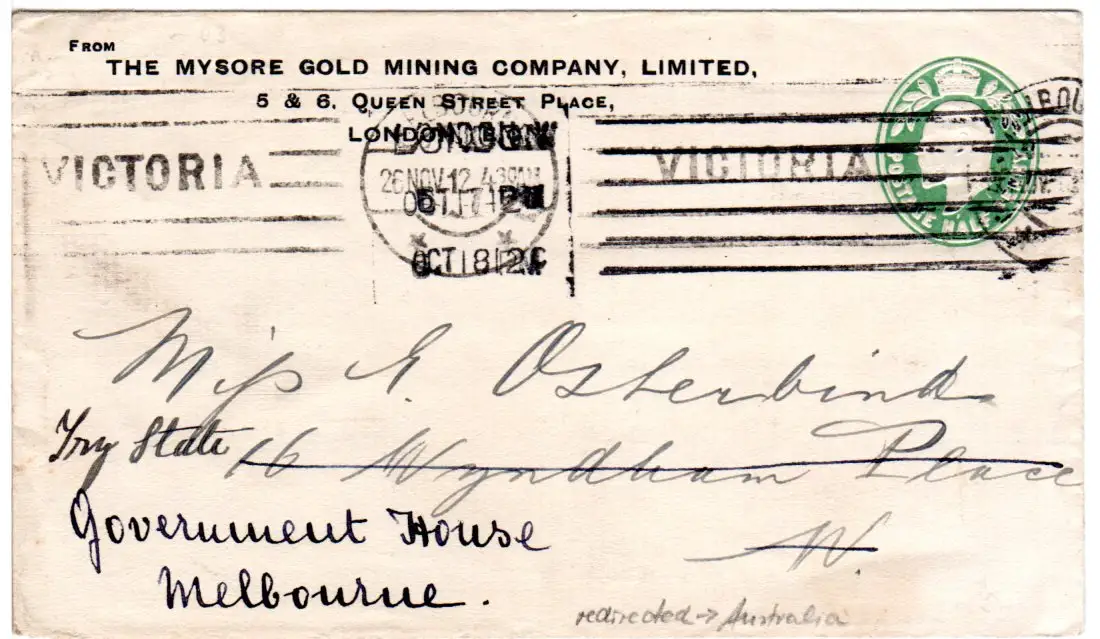 FROM
THE MYSORE GOLD MINING COMPANY, LIMITED,
5 & 6. QUEEN STREET PLACE,
LONDON
VICTORIA
VICTORIA
26 NOV 12 4 30 PM
OCT 17 12
OCT 18 12
POSTAGE HALF
Miss E. Osterbind
Try State 16 Wyndham Place
W.
Government House
Melbourne.
redirected → Australia